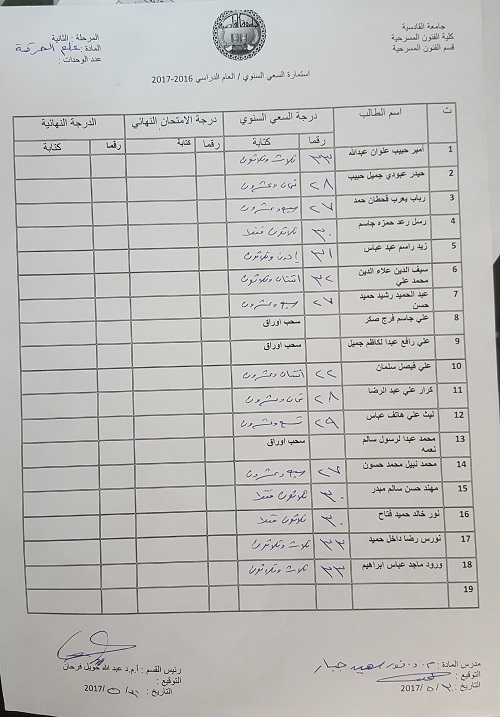 جامعة القادسية
كلية الفنون المسرحية
قسم الفنون المسرحية
المرحلة : الثانية
المادة : علم الحركة
عدد الوحدات :
استمارة السعي السنوي / العام الدراسي 2016-2017
ت اسم الطالب درجة السعي السنوي درجة الامتحان النهائي الدرجة النهائية
رقما كتابة رقما كتابة رقما كتابة
1 امير حبيب علوان عبدالله ٣٣ ثلاث وثلاثون
2 حيدر عبودي جميل حبيب ٢٨ ثمان وعشرون
3 رباب يعرب قحطان حمد ٢٧ سبع وعشرون
4 رسل رعد حمزه جاسم ٣٠ ثلاثون فقط
5 زيد راسم عبد عباس ٣١ وثلاثون
6 سيف الدين علاء الدين محمد علي ٣٢ اثنتان وثلاثون
7 عبد الحميد رشيد حميد حسن ٢٧ سبع وعشرون
8 علي جاسم فرج صكر سحب اوراق
9 علي رافع عبدا لكاظم جميل سحب اوراق
10 علي فيصل سلمان ٢٢ اثنتان وعشرون
11 كرار علي عبد الرضا ٢٨ ثمان وعشرون
12 ليث علي هاتف عباس ٢٩ تسع وعشرون
13 محمد عبدا لرسول سالم نعمه سحب اوراق
14 محمد نبيل محمد حسون ٢٧ سبع وعشرون
15 مهند حسن سالم ميدر ٣٠ ثلاثون فقط
16 نور خالد حميد فتاح ٣٠ ثلاثون فقط
17 نورس رضا داخل حميد ٣٣ ثلاث وثلاثون
18 ورود ماجد عباس ابراهيم ٣٣ ثلاث وثلاثون
19
مدرس المادة : م.د. نور سعيد جبار
التوقيع :
التاريخ : /٥ /2017
رئيس القسم : أ.م.د عبد الله حويل فرحان
التوقيع :
التاريخ : /٥ /2017